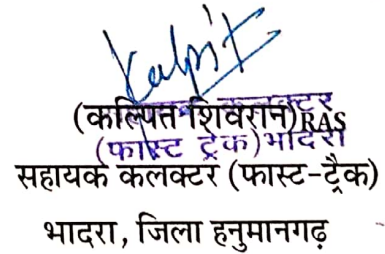 Kalpit
(कल्पित शिवरान)RAS
कलक्टर
(फास्ट ट्रेक)भादरा
सहायक कलक्टर (फास्ट-ट्रैक)
भादरा, जिला हनुमानगढ़